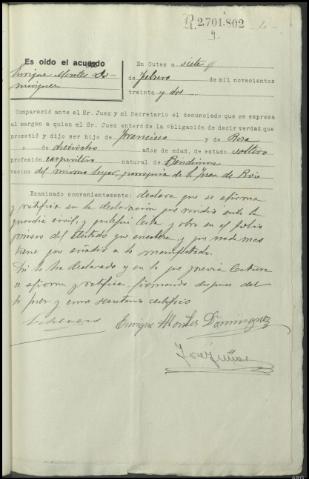 R 2.701.802
9
Es oido el acusado
Enrique Montes Do-
minguez
En Cutes a siete
de febrero de mil novecientos
treinta y dos
Compareció ante el Sr. Juez y mi Secretario el denunciado que se expresa
al margen a quien el Sr. Juez enteró de la obligación de decir verdad que
prometió y dijo ser hijo de Francisco y de Rosa
de dieciocho años de edad, de estado soltero
profesión carpintero natural de
vecino del mismo lugar, parroquia de
Examinado convenientemente: declara que se afirma
y ratifica en la declaración que rindió ante la
guardia civil, y obra en el folio
primero del que encabeza, y que nada mas
tiene que añadir a lo manifestado.
Así lo ha declarado y en lo que previa lectura
se afirma y ratifica, firmando despues del
Sr Juez y como secretario certifico
Enrique Montes Dominguez